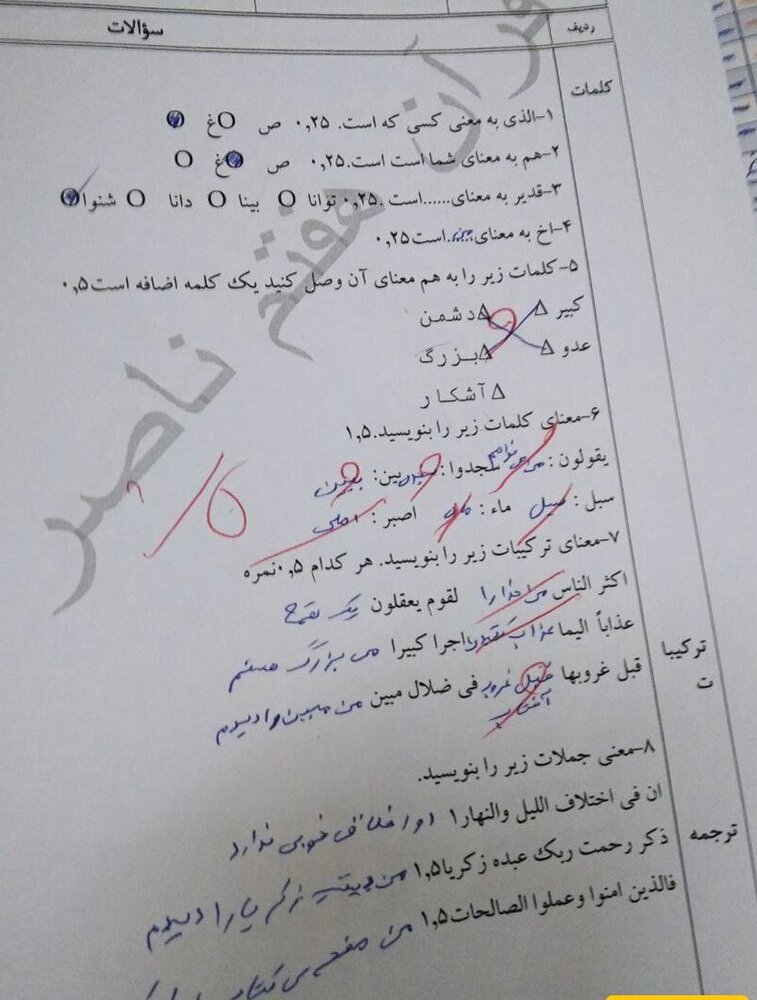 ردیف سؤالات
قرآن هفتم ناصر
کلمات
۱-الذی به معنی کسی که است. ۰,۲۵ ص غ
۲-هم به معنای شما است است.۰,۲۵ ص غ
۳-قدیر به معنای......است .۰,۲۵ توانا بینا دانا شنوا
۴-اخ به معنای......است۰,۲۵
۵-کلمات زیر را به هم معنای آن وصل کنید یک کلمه اضافه است۰,۵
کبیر دشمن
عدو بزرگ
آشکار
۶-معنای کلمات زیر را بنویسید.۱,۵
یقولون: سجدوا: بین:
سبل: سیل ماء: ماه اصبر: اصلی
۷-معنای ترکیبات زیر را بنویسید. هر کدام ۰,۵نمره
اکثر الناس لقوم یعقلون یک
ترکیبات
عذاباً الیما عذاب اجرا کبیرا من بزرگ هستم
قبل غروبها قبل غروب آفتاب فی ضلال مبین من مبین را دیدم
۸-معنی جملات زیر را بنویسید.
ترجمه
ان فی اختلاف اللیل والنهار۱ او اخلاق خوبی ندارد
ذکر رحمت ربک عبده زکریا۱,۵ من زکریا را دیدم
فالذین امنوا وعملوا الصالحات۱,۵ من